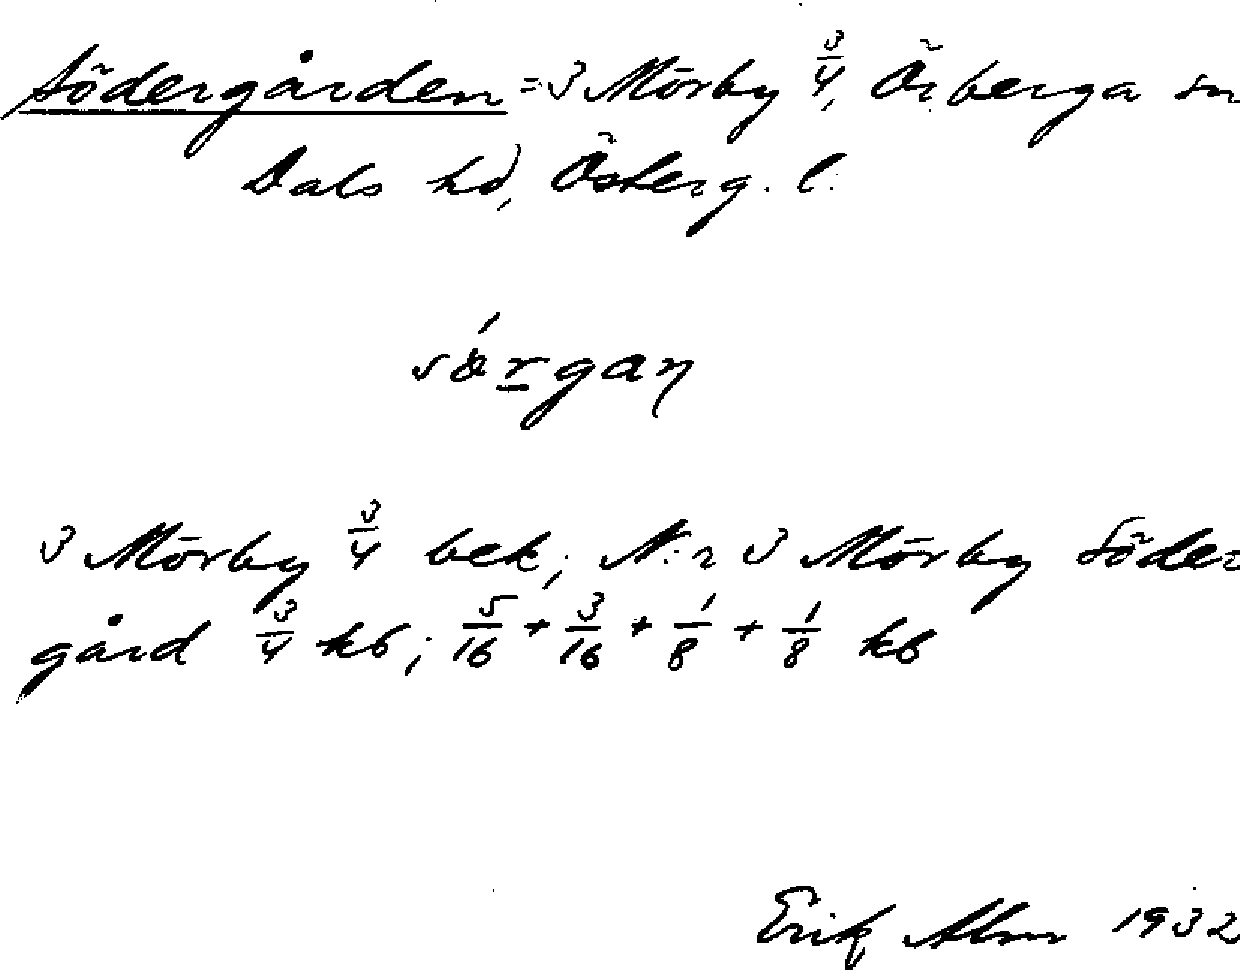 Södergården = 3 Mörby 3/4, Örberga sn
Dals hd, Österg. l.
sǿrgaŋ
3 Mörby 3/4 bek; N:r 3 Mörby Söder
gård 3/4 kb; 5/16 + 3/16 + 1/8 + 1/8 kb
Erik Alm 1932